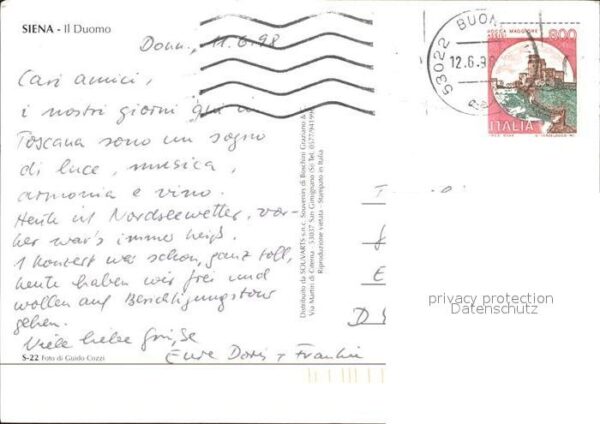 SIENA - Il Duomo
Donn., 11.6.98
Cari amici,
i nostri giorni qui in
Toscana sono un sogno
di luce, musica,
armonia e vino.
Heute ist Nordseewetter, vor-
her war's immer heiß.
1 Konzert war schon, ganz toll,
heute haben wir frei und
wollen auf Besichtigungstour
gehen.
Viele liebe Grüße
Eure Doris +
S-22 Foto di Guido Cozzi
Distribuito da SOLVARTS s.n.c. Souvenirs di Boschini Graziano &
Via Martiri di Citerna - 53037 San Gimignano (Si) Tel. 0577/941
Riproduzione vietata - Stampato in Italia
53022 BUON
12.6.9
ROCCA MAGGIORE
ASSISI
800
ITALIA
D
privacy protection
Datenschutz